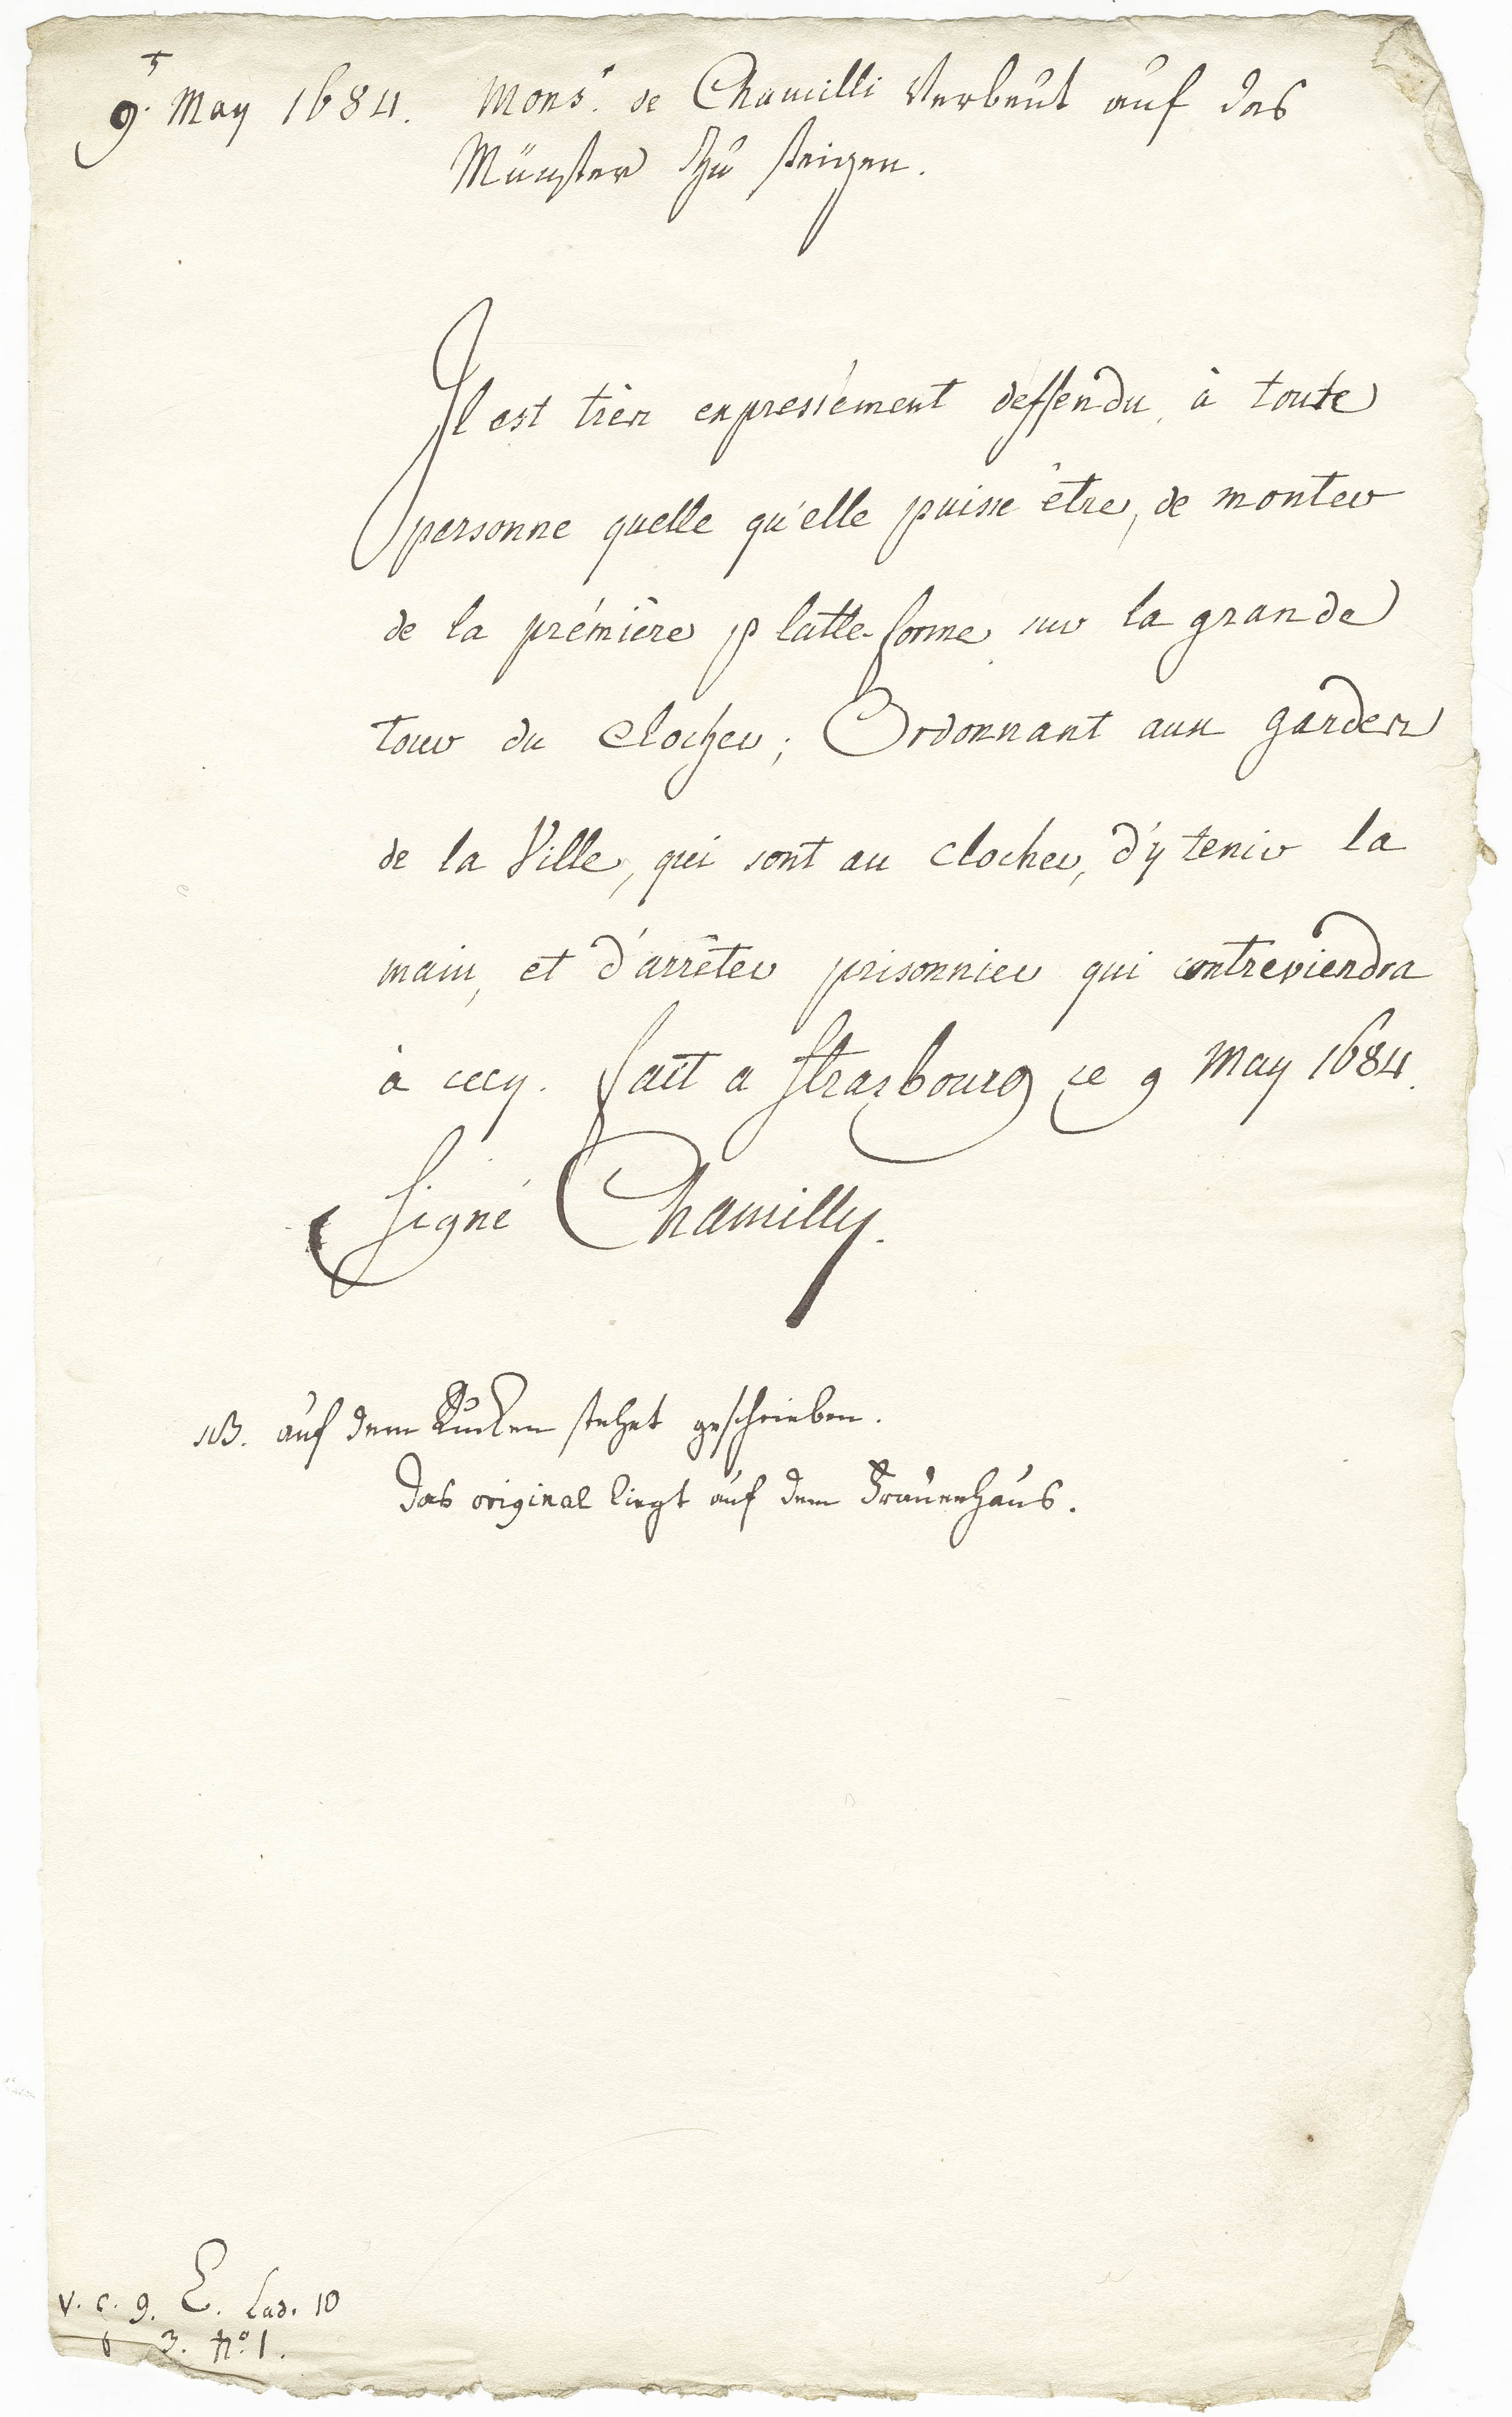 9. May 1684. Mons.r de Chamilli Verbeut auf das
Münster zu steigen.
Il est très expressément deffendu, à toute
personne quelle qu'elle puisse être, de monter
de la prémière platte-forme sur la grande
tour du clocher; Ordonnant aux gardes
de la Ville, qui sont au clocher, d'y tenir la
main, et d'arrêter prisonnier qui contreviendra
à cecy. fait a Strasbourg ce 9 May 1684.
Signé Chamilly.
NB. auf dem Rucken stehet geschrieben.
das original liegt auf dem Frauenhaus.
V. C. 9. E. Lad. 10
6 3. No. 1.